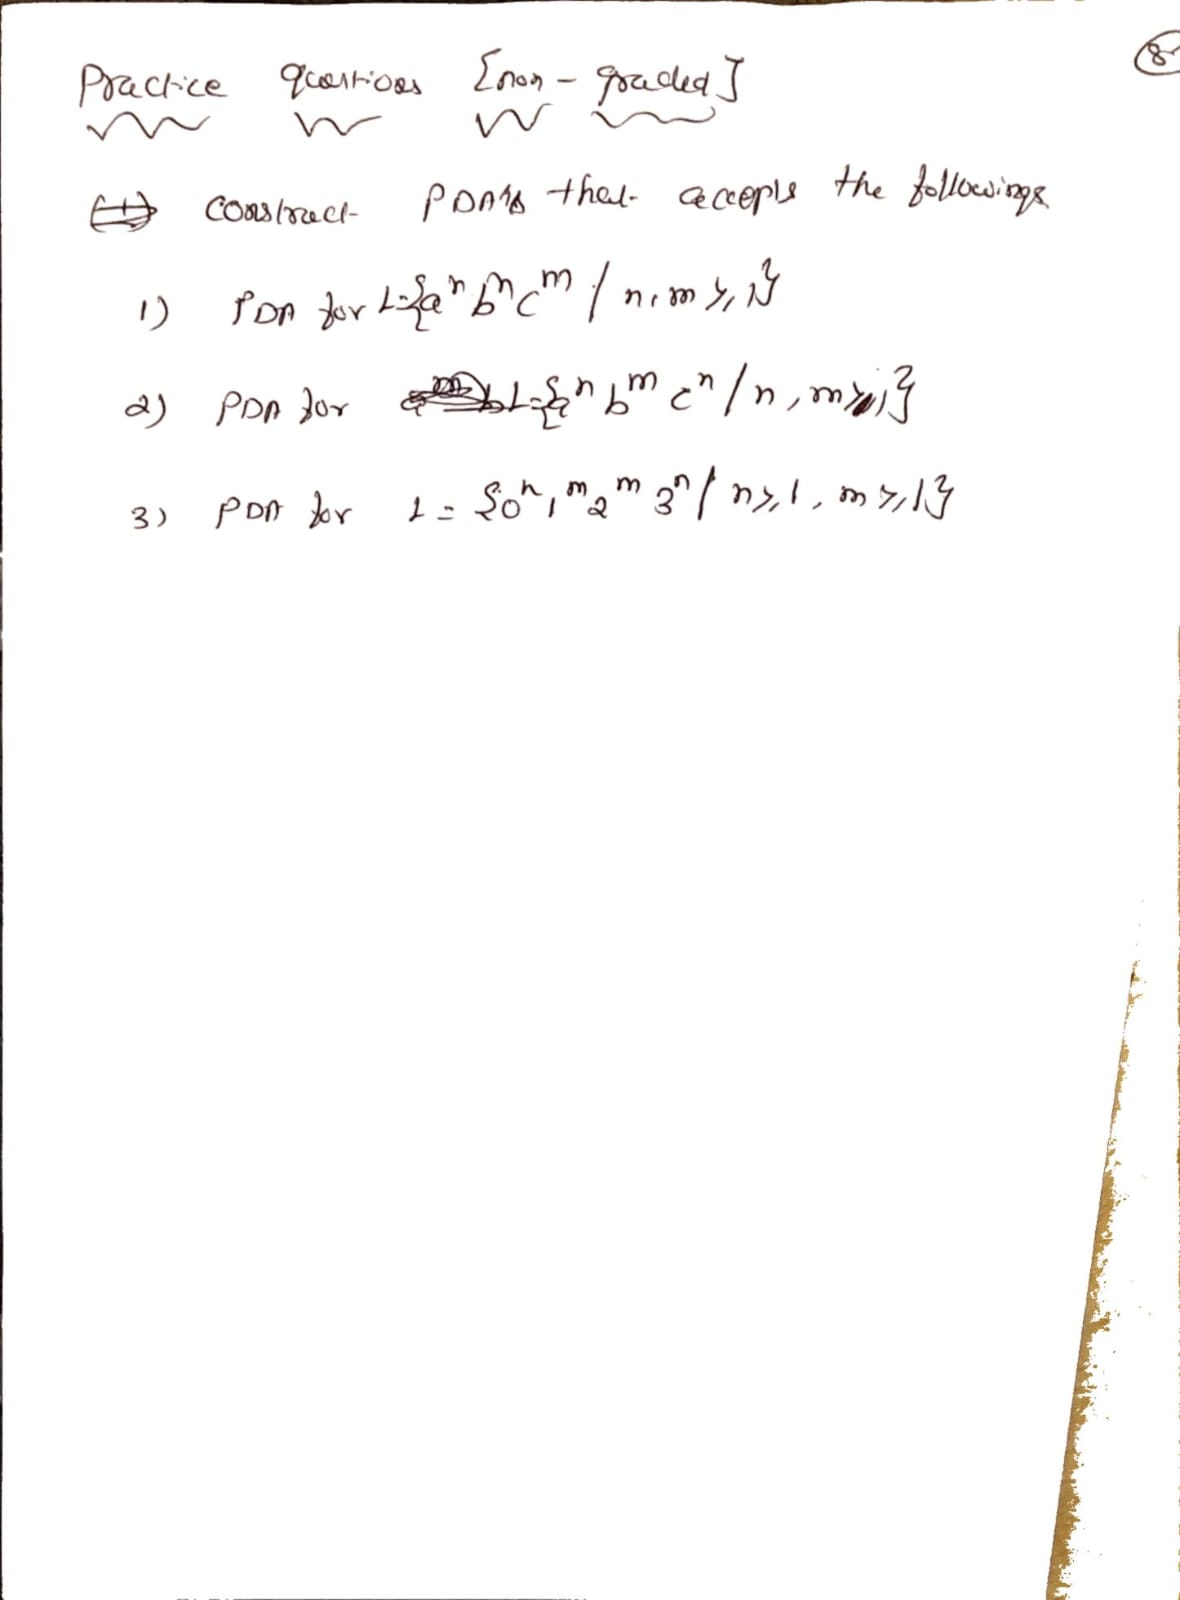 8
Practice questions [non-graded]
construct PDA's that accepts the followings
1) PDA for L={aⁿ bⁿ cᵐ / n, m ≥, 1}
2) PDA for L={aⁿ bᵐ cⁿ / n, m ≥, 1}
3) PDA for L = {0ⁿ 1ᵐ 2ᵐ 3ⁿ / n ≥, 1, m ≥, 1}